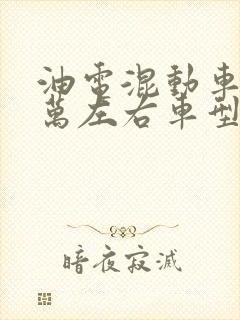 油電混動車
萬左右車型
暗夜寂滅